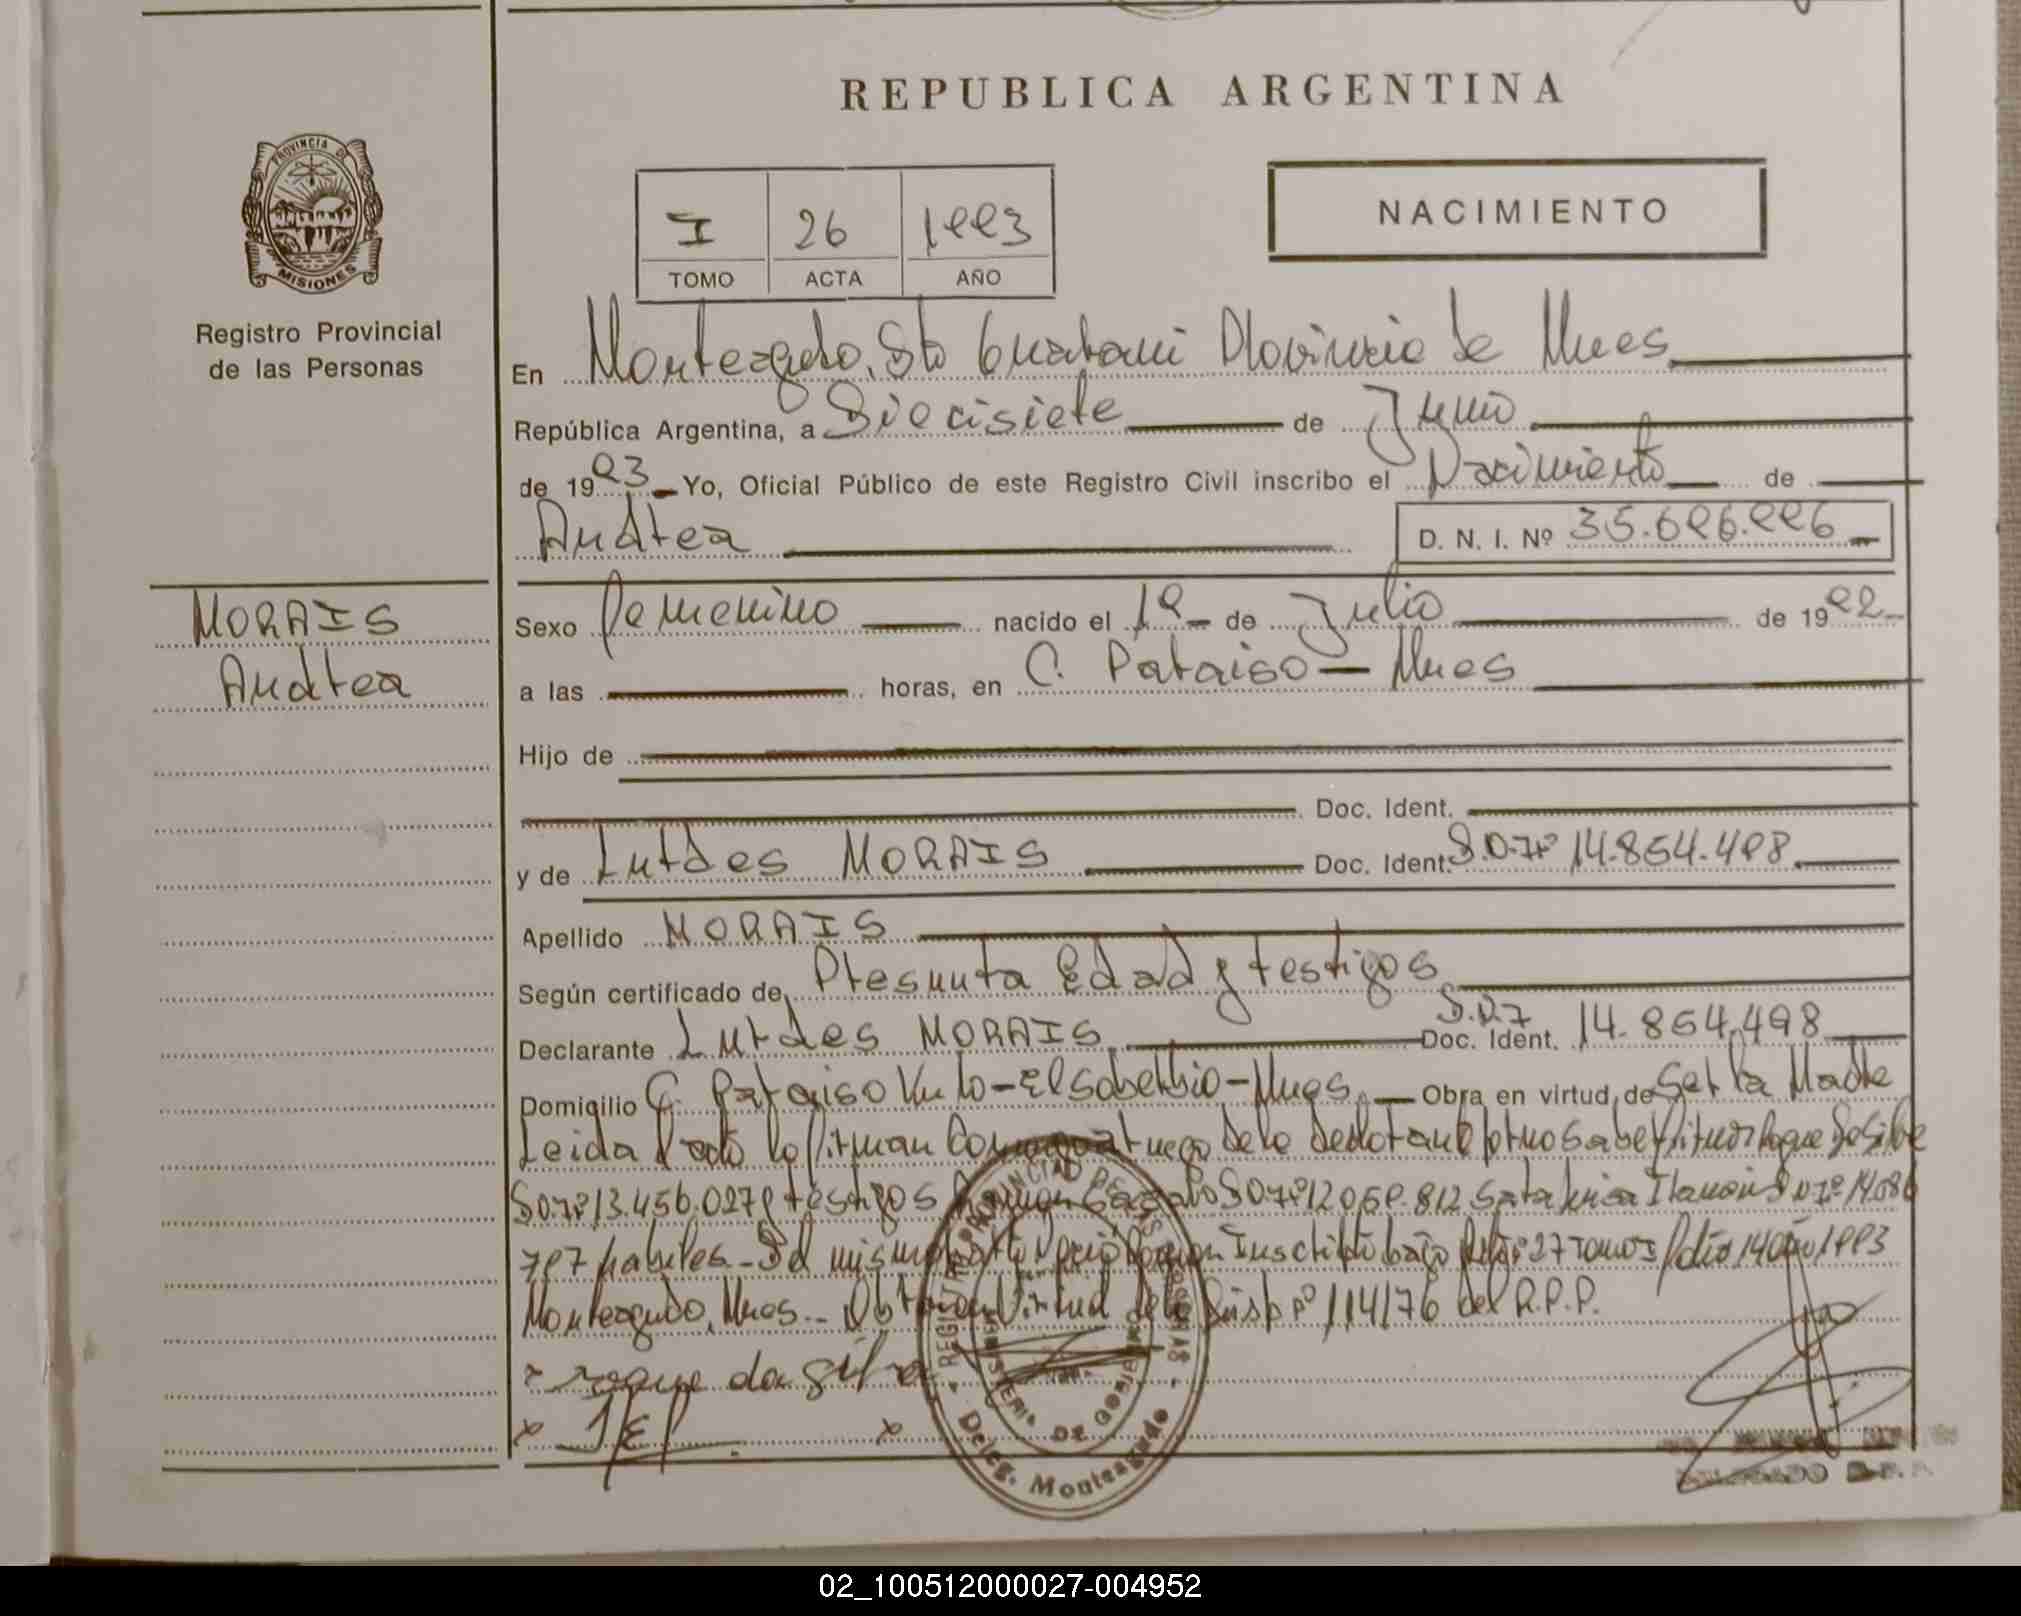 REPUBLICA ARGENTINA
PROVINCIA DE
MISIONES
Registro Provincial
de las Personas
I 26 1993
TOMO ACTA AÑO
NACIMIENTO
En Monteagudo, Dto Guarani Provincia de Mnes
República Argentina, a Diecisiete de Junio
de 1993 Yo, Oficial Público de este Registro Civil inscribo el Nacimiento de
Andrea D. N. I. Nº 35.696.996
MORAIS
Andrea
Sexo Femenino nacido el 19 de Julio de 1992
a las horas, en C. Paraiso - Mnes
Hijo de
Doc. Ident.
y de Lurdes MORAIS Doc. Ident. D.N.Iº 14.864.498
Apellido MORAIS
Según certificado de Presunta Edad y testigos
Declarante Lurdes MORAIS Doc. Ident. D.N.I 14.864.498
Domicilio C. Paraiso - El soberbio - Mnes. Obra en virtud de Ser la Madre
Leida el acta la firman Conmigo a ruego de la declarante por no saber firmar Roque Da Silva
13.456.027 y testigos
797 habiles - 27 Tomo I 1993
Monteagudo, Mnes. - Obra en Virtud de la Disp nº 114/76 del R.P.P.
x roque da Silva
x x
REGISTRO PROVINCIAL DE LAS PERSONAS
MINISTERIO DE GOBIERNO
Deleg. Monteagudo
02_100512000027-004952